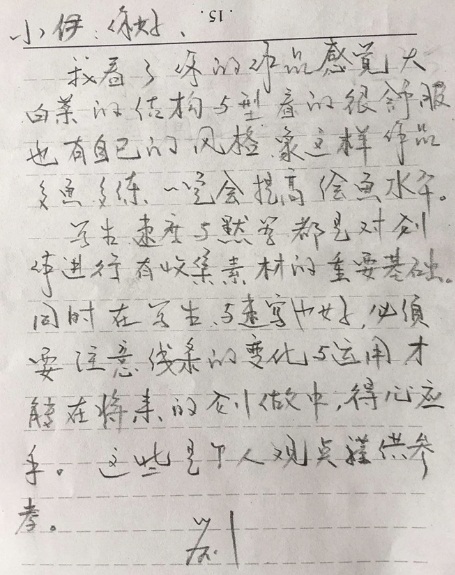 .15.
小伊：你好、
我看了你的作品感觉大
白菜的结构与型看的很舒服
也有自己的风格象这样作品
多画多练、一定会提高绘画水平。
写生速写与默写都是对创
作进行有收集素材的重要基础。
同时在写生、与速写也好，必须
要注意线条的变化与运用才
能在将来的创做中，得心应
手。这些是个人观点谨供参
考。